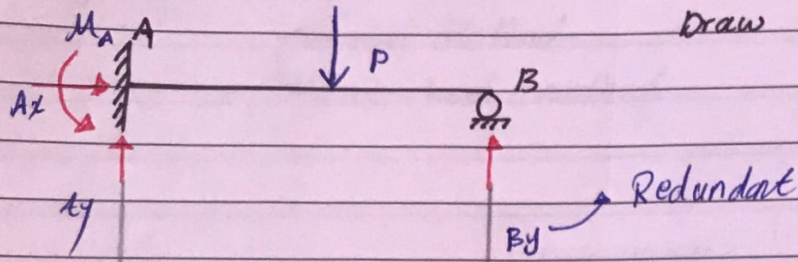 MA A
Draw
P
B
Ax
Ay
By
Redundant